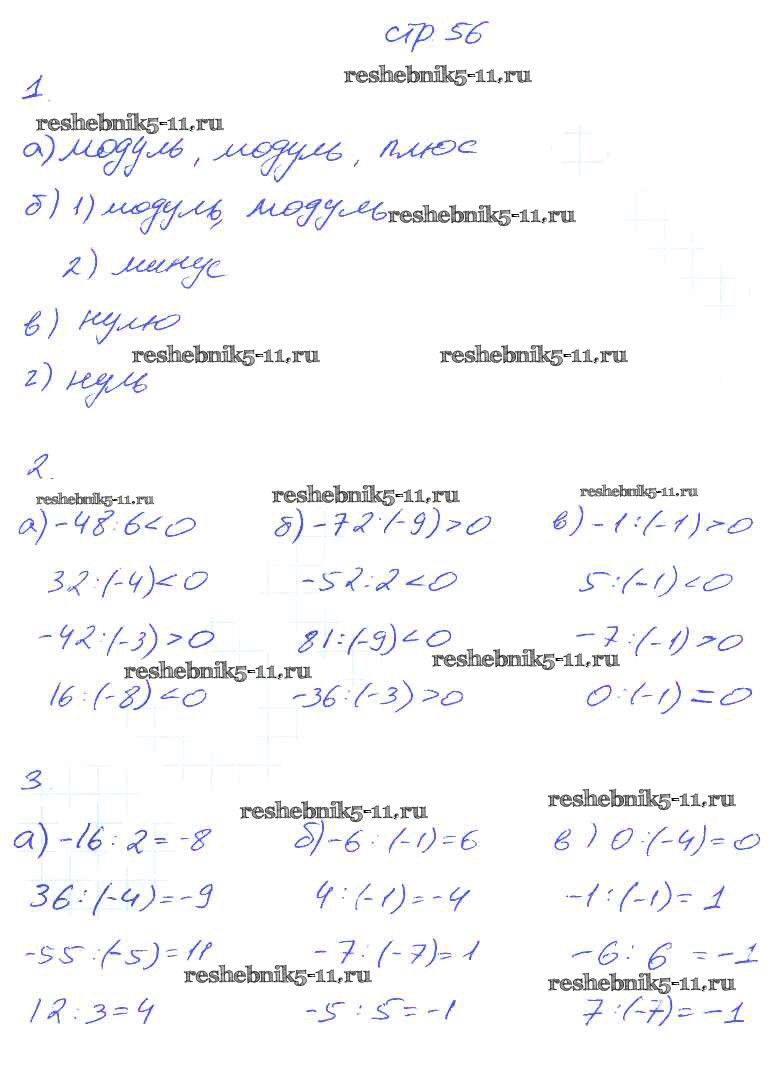 стр 56
reshebnik5-11.ru
1.
reshebnik5-11.ru
а) модуль, модуль, плюс
б) 1) модуль, модуль reshebnik5-11.ru
2) минус
в) нулю
reshebnik5-11.ru reshebnik5-11.ru
г) нуль
2.
reshebnik5-11.ru reshebnik5-11.ru reshebnik5-11.ru
а) -48:6<0 б) -72:(-9)>0 в) -1:(-1)>0
32:(-4)<0 -52:2<0 5:(-1)<0
-42:(-3)>0 81:(-9)<0 -7:(-1)>0
reshebnik5-11.ru reshebnik5-11.ru
16:(-8)<0 -36:(-3)>0 0:(-1)=0
3.
reshebnik5-11.ru reshebnik5-11.ru
а) -16:2=-8 б) -6:(-1)=6 в) 0:(-4)=0
36:(-4)=-9 4:(-1)=-4 -1:(-1)=1
-55:(-5)=11 -7:(-7)=1 -6:6=-1
reshebnik5-11.ru reshebnik5-11.ru
12:3=4 -5:5=-1 7:(-7)=-1